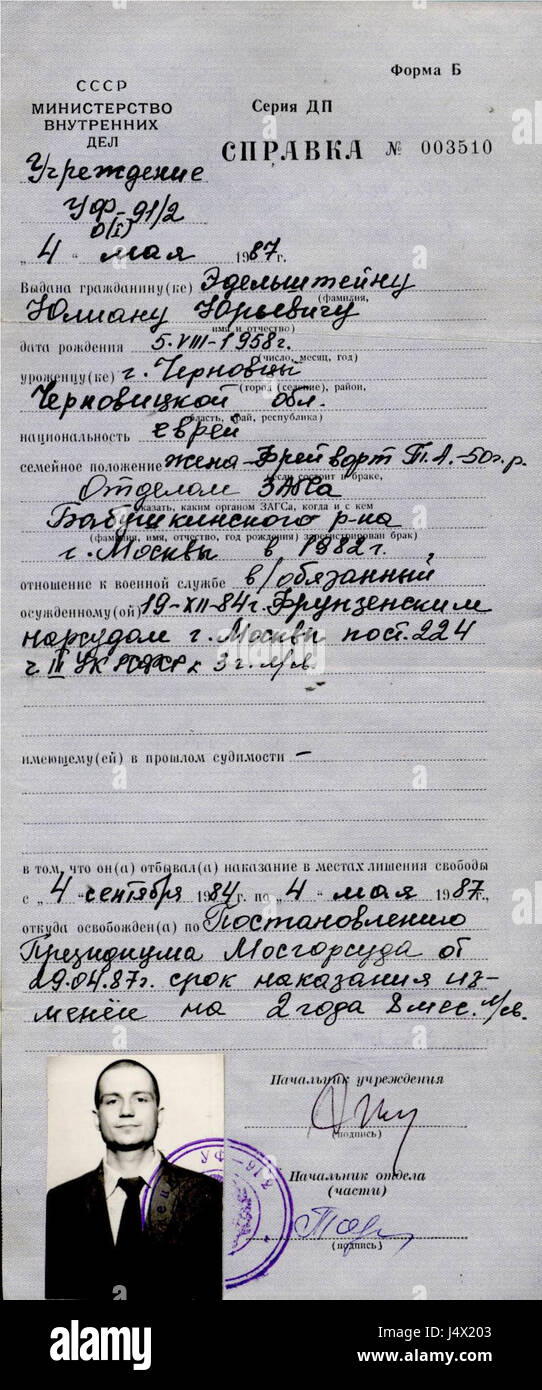 Форма Б
СССР
МИНИСТЕРСТВО
ВНУТРЕННИХ
ДЕЛ
Серия ДП
СПРАВКА № 003510
Учреждение
УФ-91/2
„4“ мая 1987г.
Выдана гражданину(ке) Эдельштейну
(фамилия,
Юлиану Юрьевичу
имя и отчество)
дата рождения 5.VIII-1958г.
(число, месяц, год)
уроженцу(ке) г. Черновцы
(город (селение), район,
Черновицкой обл.
область, край, республика)
национальность еврей
семейное положение жена-Фрейворт Т.А.-50г.р.
(если состоит в браке,
Отделом ЗАГСа
указать, каким органом ЗАГСа, когда и с кем
Бабушкинского р-на
(фамилия, имя, отчество, год рождения) зарегистрирован брак)
г. Москвы в 1982г.,
отношение к военной службе в/обязанный
осужденному(ой) 19-XII-84г. Фрунзенским
нарсудом г. Москвы по ст. 224
ч. III УК РСФСР к 3 г. л/св.
имеющему(ей) в прошлом судимости —
в том, что он(а) отбывал(а) наказание в местах лишения свободы
с „4“ сентября 1984г. по „4“ мая 1987г.,
откуда освобожден(а) по Постановлению
Президиума Мосгорсуда от
29.04.87г. срок наказания из-
менён на 2 года 8 мес. л/св.
Начальник учреждения
(подпись)
Начальник отдела
(части)
(подпись)
a
alamy
alamy
Image ID: J4X203
www.alamy.com